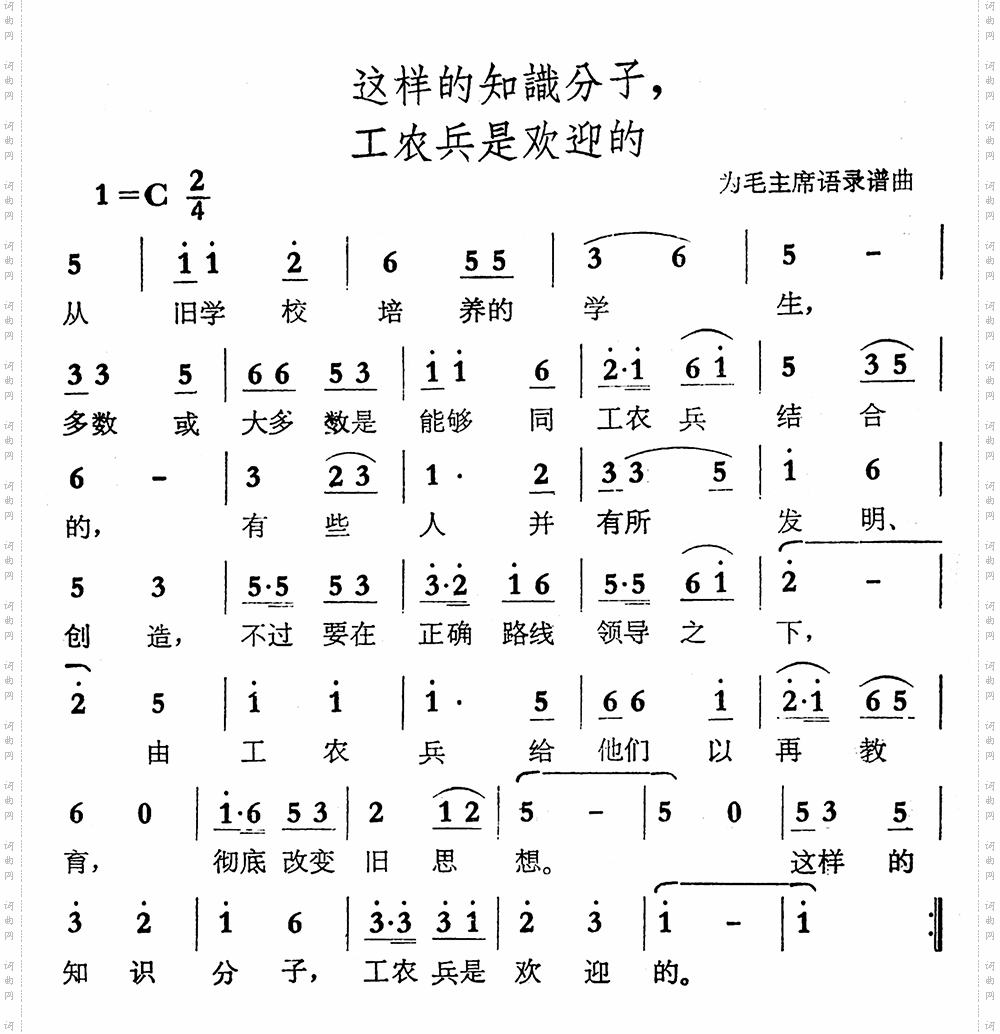 这样的知識分子，
工农兵是欢迎的
1＝C 2/4
为毛主席语录谱曲
5 | i̲ i 2̲̇ | 6 5̲ 5̲ | 3 6 | 5 － |
从 旧学 校 培 养的 学 生，
3̲ 3 5̲ | 6̲ 6̲ 5̲ 3̲ | i̲ i 6̲ | 2̇·i 6 i | 5 3 5 |
多数 或 大多 数是 能够 同 工农 兵 结 合
6 － | 3 2 3 | 1· 2 | 3 3 5 | i 6 |
的， 有 些 人 并 有所 发 明、
5 3 | 5·5 5 3 | 3̇·2̇ i 6 | 5·5 6 i | 2̇ － |
创 造， 不过 要在 正确 路线 领导 之 下，
2̇ 5 | i i | i· 5 | 6 6 i | 2̇·i 6 5 |
由 工 农 兵 给 他们 以 再 教
6 0 | i·6 5 3 | 2 1 2 | 5 － | 5 0 | 5 3 5 |
育， 彻底 改变 旧 思 想。 这样 的
3̇ 2̇ | i 6 | 3̇·3̇ 3̇ i | 2̇ 3̇ | i － | i :‖
知 识 分 子， 工农 兵是 欢 迎 的。
词曲网